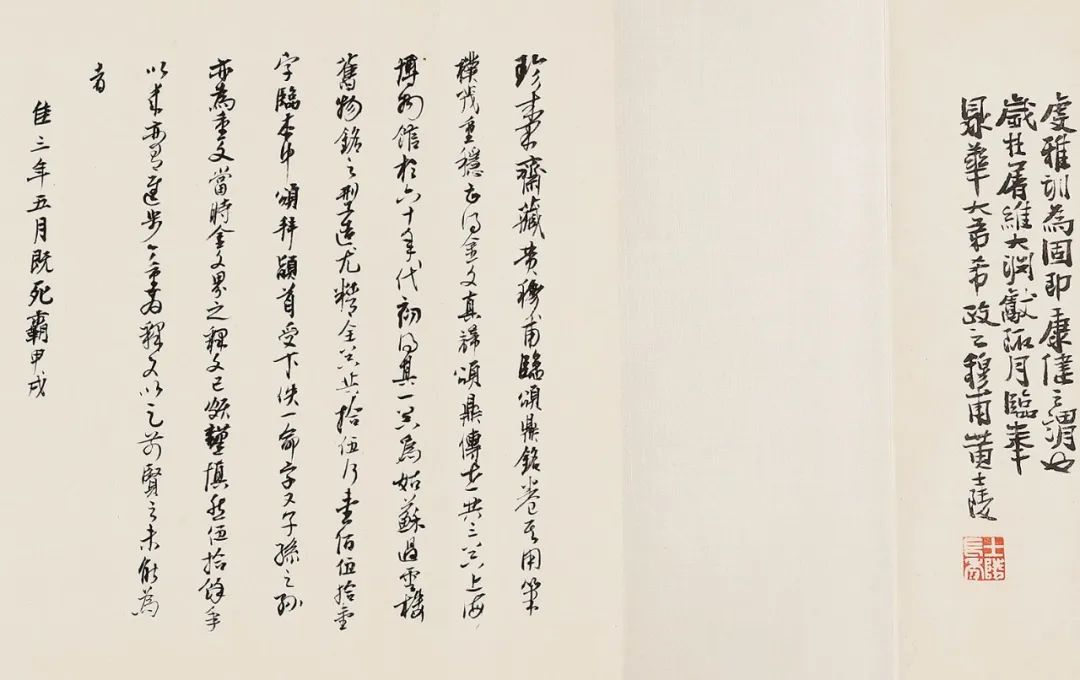 虔雅訓為固即王康健之謂也
歲在屠維大淵獻痳月臨奉
鼎華大弟希政之穆甫黃士陵
士陵長壽
珍秦齋藏黃穆甫臨頌鼎銘卷其用筆
樸茂重穩古得金文真諦頌鼎傳世共三器上海
博物館於六十年代初得其一器為姑蘇過雲樓
舊物銘之型造尤精全器共拾伍行壹佰伍拾壹
字臨本中頌拜𩒨首受下佚一命字又子孫之孫
亦為重文當時金文界之釋文已頗謹慎然伍拾餘年
以來亦有進步今重為釋文以之前賢之未能為
者
隹三年五月既死霸甲戌